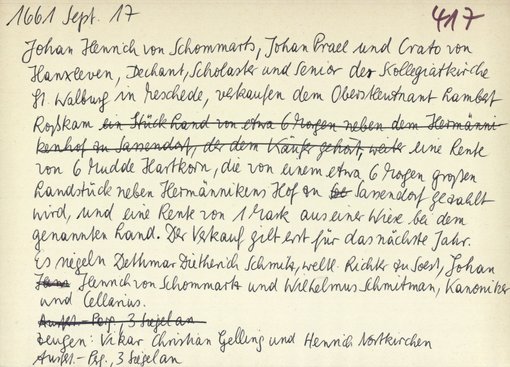 1661 Sept. 17
417
Johan Henrich von Schommarts, Johan Prael und Crato von
Hanxleven, Dechant, Scholaster und Senior der Kollegiatkirche
St. Walburg in Meschede, verkaufen dem Oberstleutnant Lambert
Roßkam ein Stück Land von etwa 6 Morgen neben dem Hermänni-
kenhof zu Sassendorf, der dem Käufer gehört, eine Rente
von 6 Mudde Hartkorn, die von einem etwa 6 Morgen großen
Landstück neben Hermännikens Hof zu Sassendorf gezahlt
wird, und eine Rente von 1 Mark aus einer Wiese bei dem
genannten Land. Der Verkauf gilt erst für das nächste Jahr.
Es siegeln Dethmar Dietherich Schmitz, weltl. Richter zu Soest, Johan
Henrich von Schommarts und Wilhelmus Schmitman, Kanoniker
und Cellarius.
Ausf.-Perg., 3 Siegel an
Zeugen: Vikar Christian Gelling und Henrich Nortkirchen
Ausf.-Pg., 3 Siegel an